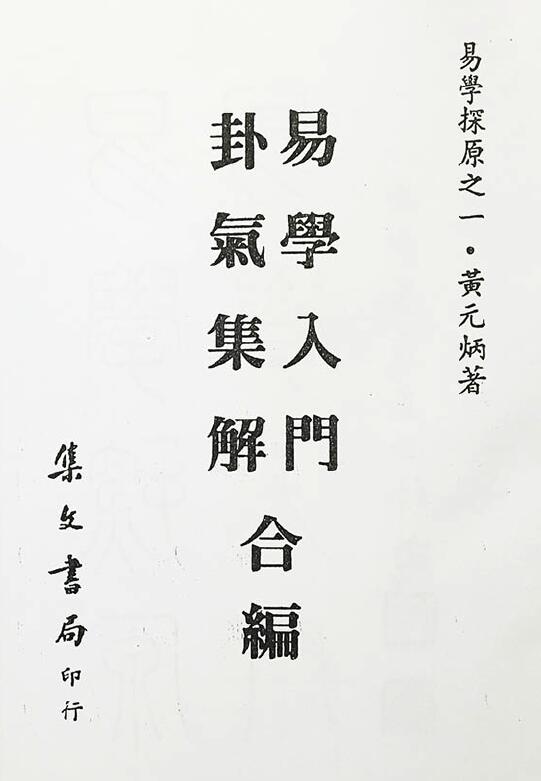 易學探原之一•黃元炳著
易學入門
卦氣集解
合編
集文書局印行